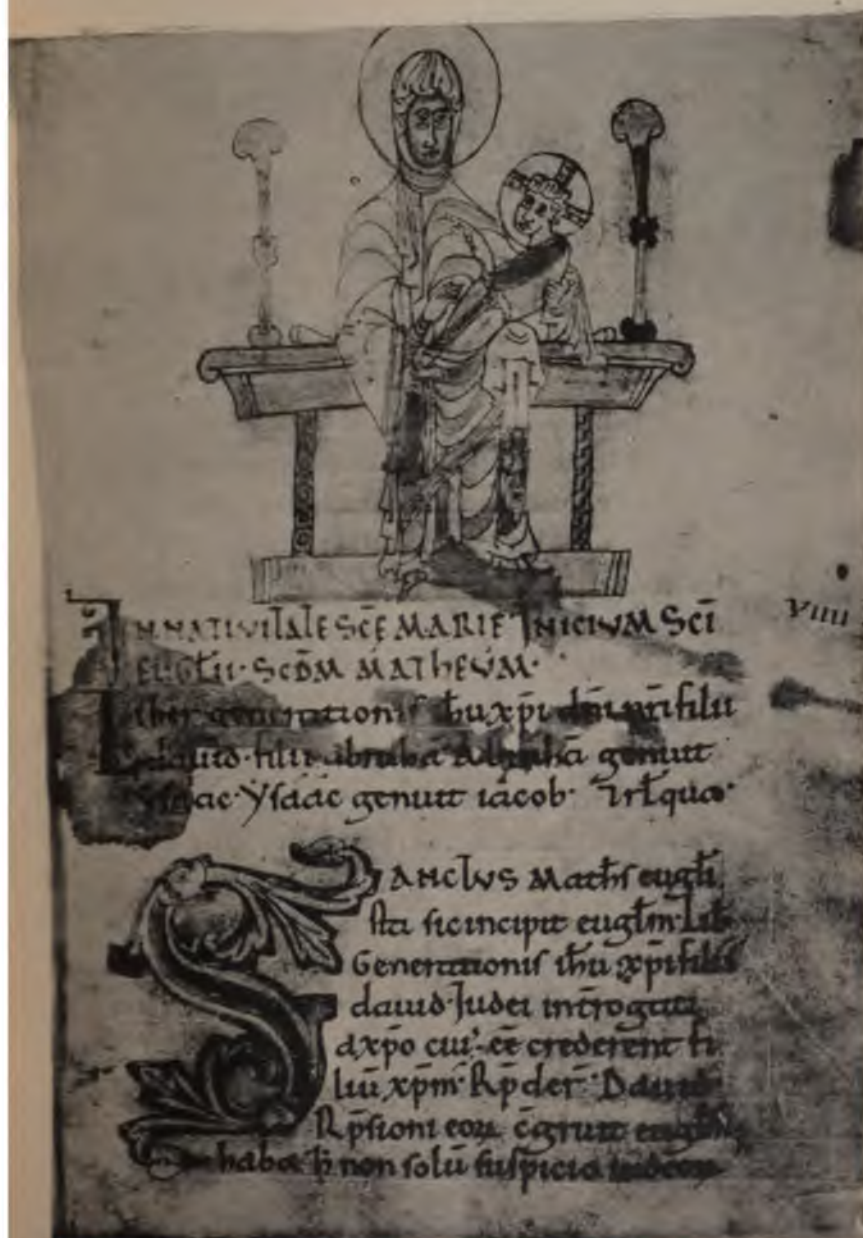 IN NATIVITATE SCE MARIE INICIUM SCI
EUGLII · SCDM MATHEUM ·
VIIII
Liber generationis ihu xpi dni nri filii
david · filii abraha Abraha genuit
Ysaac · Ysaac genuit iacob · &rlqua ·
SANCTUS Maths eugli
sta sic incipit euglm · Lib
Generationis ihu xpi filii
david · Iudei introgati
a xpo cui' ee crederent fi
liu xpm · Rpder · David
Rpsioni eoru cgruit
haba h non solu suspicio iudeoru